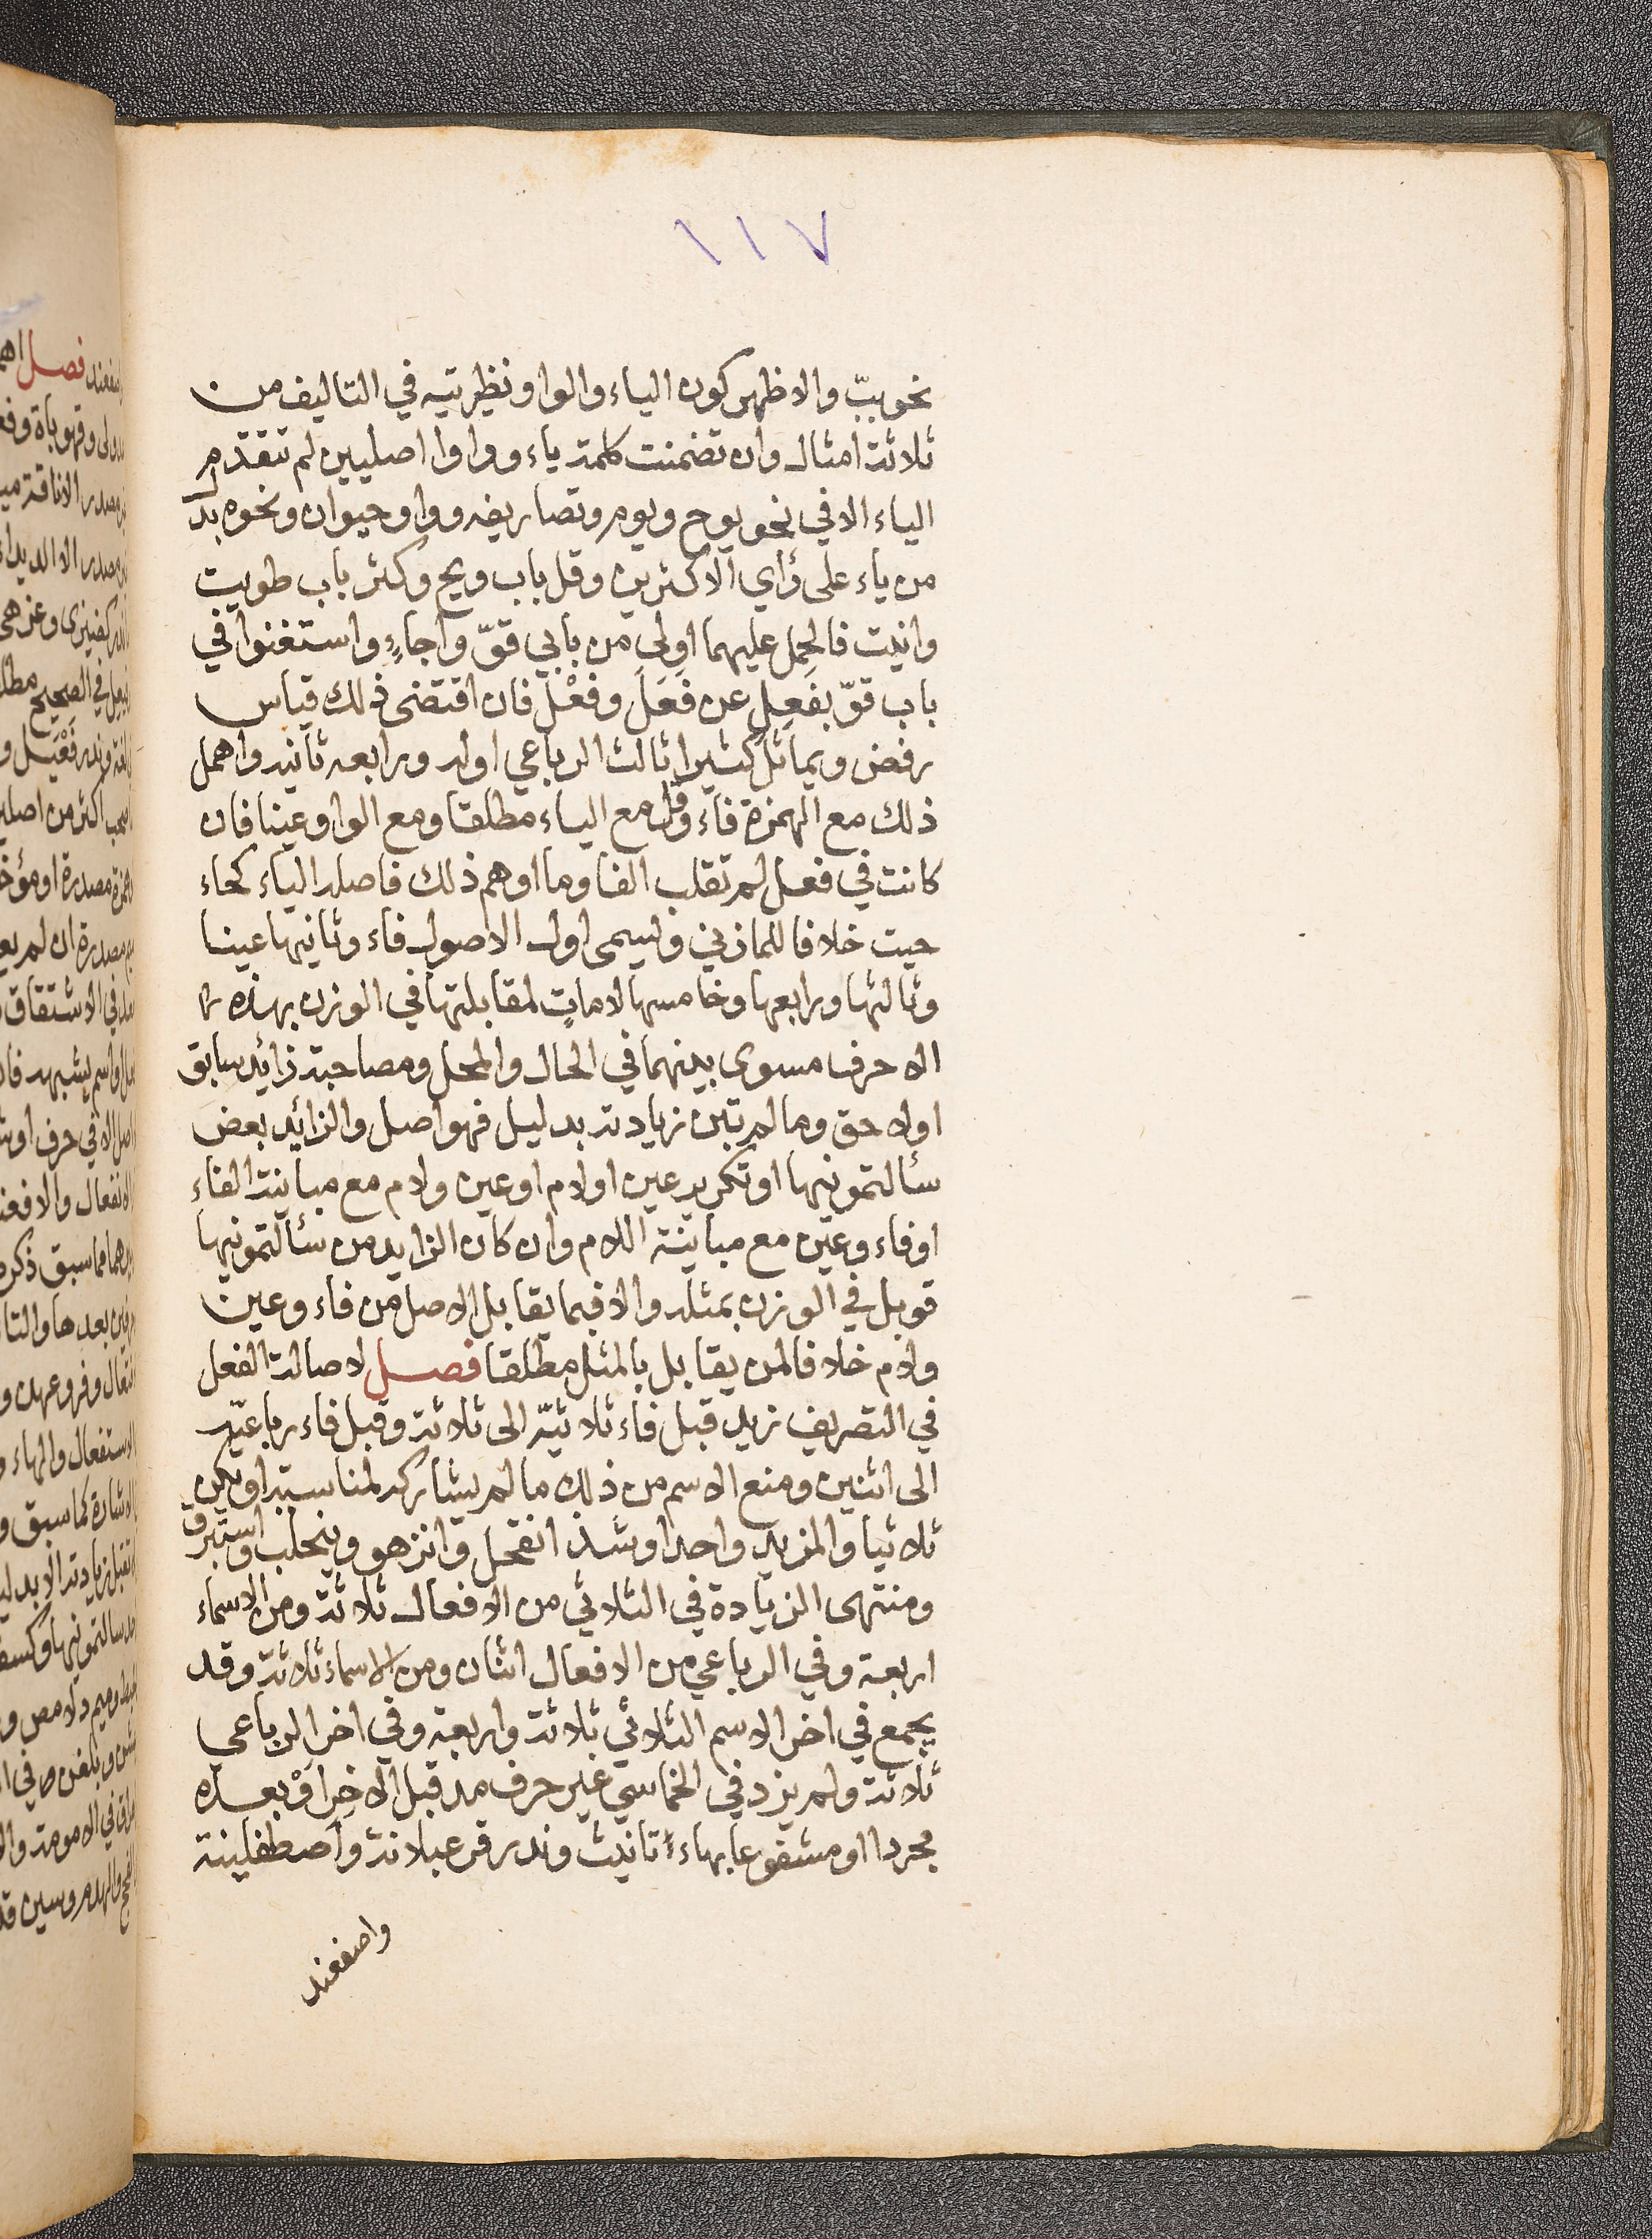 ١١٧
نحو ببّ والاظهر كون الياء والواو نظيرتيه في التاليف من
ثلاثة امثال وان تضمنت كلمة ياء وواوا اصليين لم تتقدم
الياء الا في نحو يوح ويوم وتصاريفه وواو حيوان ونحوه بدل
من ياء على رأي الاكثرين وقل باب ويح وكثر باب طويت
واتيت فالحمل عليهما اولى من بابي قوّ واجاءٍ واستغنوا في
باب قوّ بفَعِل عن فَعَل وفَعْل فان اقتضى ذلك قياس
رفض ويماثل كثيرا ثالث الرباعي اوله ورابعه ثانيه واهمل
ذلك مع الهمزة فاء وقل مع الياء مطلقا ومع الواو عينا فان
كانت في فعل لم تقلب الفا وما اوهم ذلك فاصله الياء كحاء
حيت خلافا للمازني وتسمى اول الاصول فاء وثانيها عينا
وثالثها ورابعها وخامسها لامات لمقابلتها في الوزن بهذه
الاحرف مسوى بينهما في الحال والمحل ومصاحبة زائد سابق
او لاحق وما لم تبن زيادته بدليل فهو اصل والزائد بعض
سألتمونيها او تكرير عين او لام او عين ولام مع مباينة الفاء
او فاء وعين مع مباينة اللام وان كان الزايد من سألتمونيها
قوبل في الوزن بمثله والا فبما يقابل الاصل من فاء وعين
ولام خلافا لمن يقابل بالمثل مطلقا فصل لاصالة الفعل
في التصريف زيد قبل فاء ثلاثيّه الى ثلاثة وقبل فاء رباعيّه
الى اثنين ومنع الاسم من ذلك ما لم يشاركه لمناسبة او يكن
ثلاثيا والمزيد واحدا وشذ انقحل وانزهو وينجلب واستبرق
ومنتهى الزيادة في الثلاثي من الافعال ثلاثة ومن الاسماء
اربعة وفي الرباعي من الافعال اثنان ومن الاسماء ثلاثة وقد
يجمع في اخر الاسم الثلاثي ثلاثة واربعة وفي اخر الرباعي
ثلاثة ولم يزد في الخماسي غير حرف مد قبل الاخِر اوْ بعده
مجردا او مشفوعا بهاء تانيث وندر قرعبلانة واصطفلينة
واصفعند